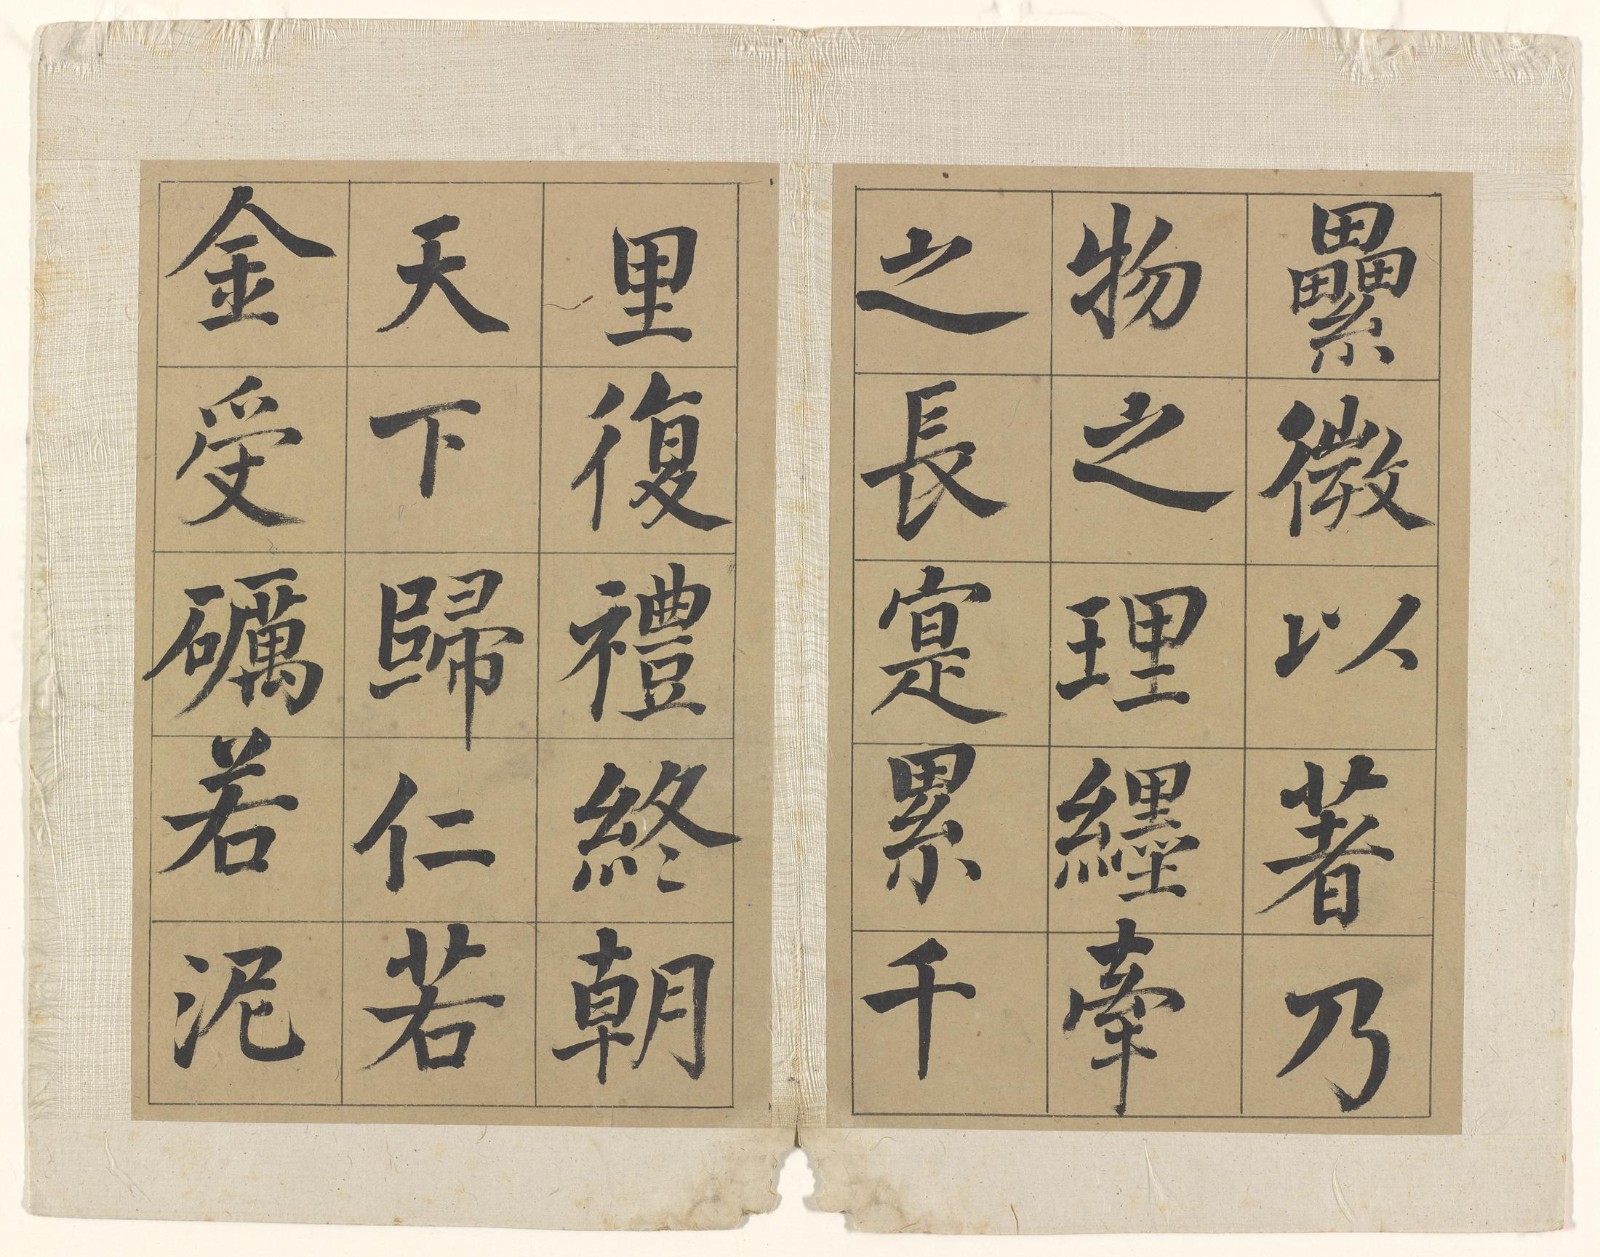 纍微以著乃
物之理纏牽
之長寔累千
里復禮終朝
天下歸仁若
金受礪若泥